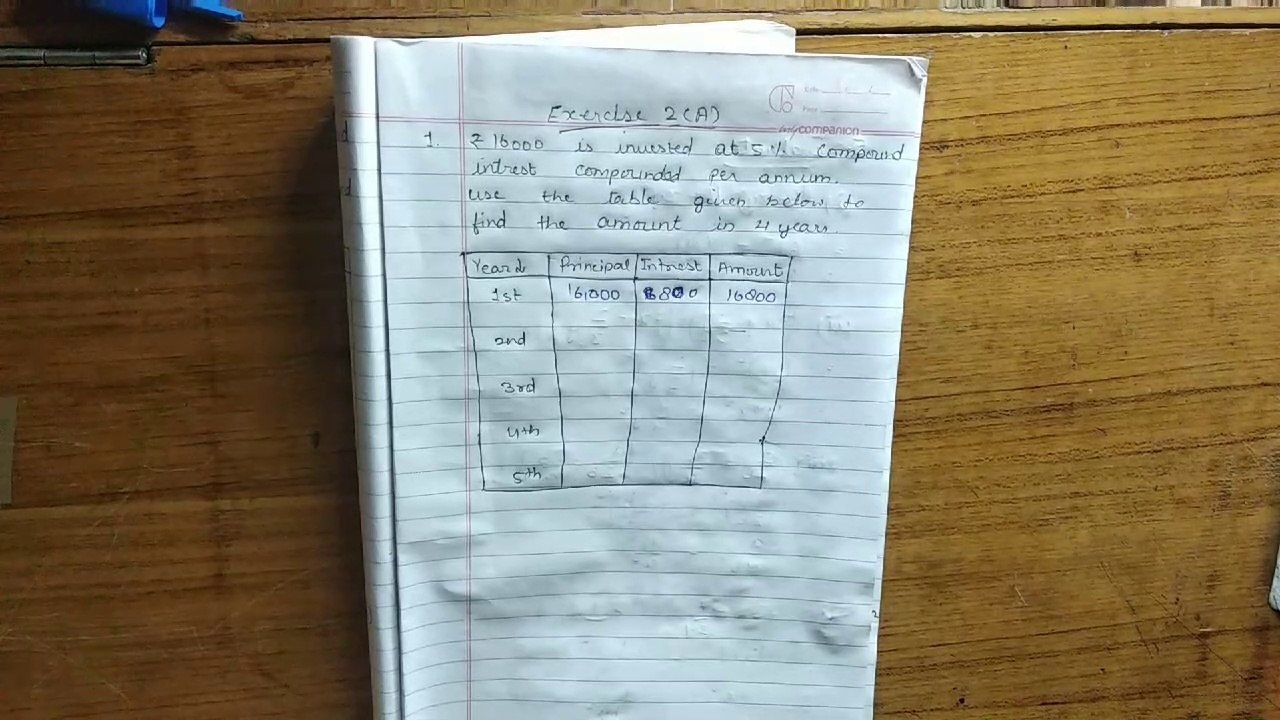 Date
Page
my companion
Exercise 2(A)
1. ₹ 16000 is invested at 5% compound
intrest compounded per annum.
use the table given below to
find the amount in 4 years.
Yeard Principal Interest Amount
1st 16,000 800 16800
2nd
3rd
4th
5th